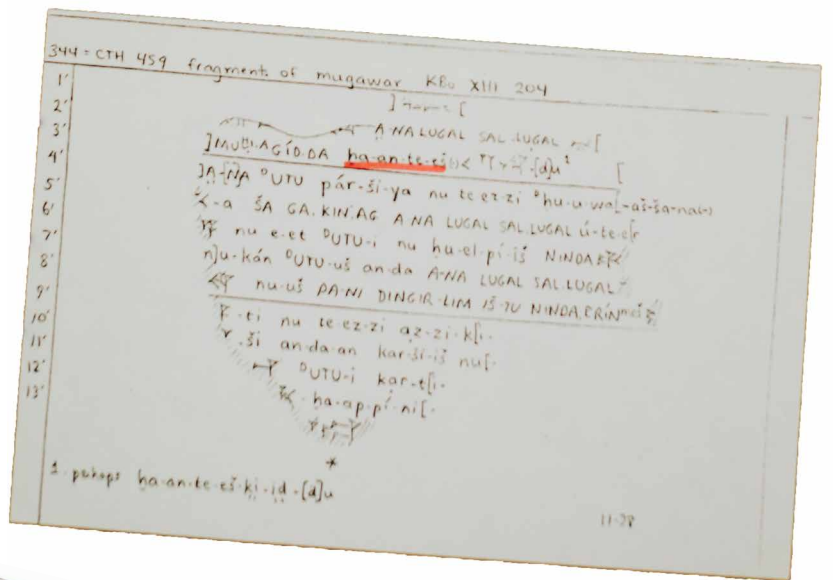 344 = CTH 459 fragments of mugawar KBo XIII 204
1'
2' ] [
3' A-NA LUGAL SAL.LUGAL [
4' ]MUḪI.A GÍD.DA ḫa-an-te-eš [d]u 1 [
5' ]A-[N]A DUTU pár-ši-ya nu te-ez-zi Dḫu-u-wa[-aš-ša-na
6' -a ŠA GA.KIN.AG A-NA LUGAL SAL.LUGAL ú-te-e[r
7' nu e-et DUTU-i nu ḫu-el-pí-iš NINDA
8' n]u-kán DUTU-uš an-da A-NA LUGAL SAL.LUGAL
9' nu-uš PA-NI DINGIR-LIM IŠ-TU NINDA.ERÍN
10' -ti nu te-ez-zi az-zi-k[i-
11' -ši an-da-an kar-ši-iš nu[-
12' DUTU-i kar-t[i-
13' ḫa-ap-pí-ni[-
*
1. perhaps ḫa-an-te-eš-ki-id-[d]u
11-28